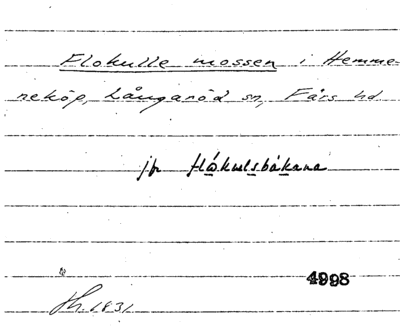 Flokulle mossen i Hemme-
neköp, Långaröd sn, Färs hd
jfr flåkulsbákana
1831
4998